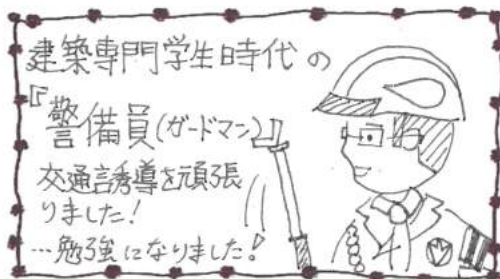 建築専門学生時代の
『警備員(ガードマン)』
交通誘導を頑張
りました!
…勉強になりました!